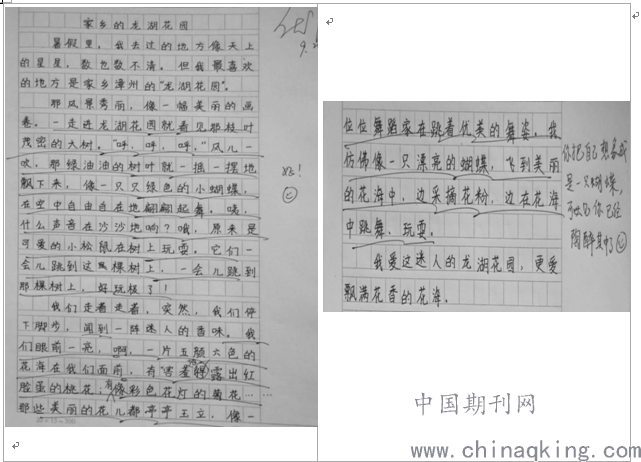 家乡的龙湖花园
暑假里，我去过的地方像天上
的星星，数也数不清。但我最喜欢
的地方是家乡漳州的“龙湖花园”。
那风景秀丽，像一幅美丽的画
卷。一走进龙湖花园就看见那枝叶
茂密的大树。“呼，呼，呼。”风儿一
吹，那绿油油的树叶就一摇一摆地
飘下来，像一只只绿色的小蝴蝶，
在空中自由自在地翩翩起舞。咦，
什么声音在沙沙地响？哦，原来是
可爱的小松鼠在树上玩耍。它们一
会儿跳到这棵树上，一会儿跳到
那棵树上，好玩极了！
我们走着走着，突然，我们停
下脚步，闻到一阵迷人的香味。我
们眼前一亮，啊，一片五颜六色的
花海在我们面前，有害羞得露出红
脸蛋的桃花；有像彩色花灯的菊花……
那些美丽的花儿都亭亭玉立，像一
20×15=300
好！
9.2
位位舞蹈家在跳着优美的舞姿。我
仿佛像一只漂亮的蝴蝶，飞到美丽
的花海中，边采摘花粉，边在花海
中跳舞、玩耍。
我爱这迷人的龙湖花园，更爱
飘满花香的花海。
你把自己想象成
是一只蝴蝶，
可以的你已经
陶醉其中了
中国期刊网
www.chinaqking.com